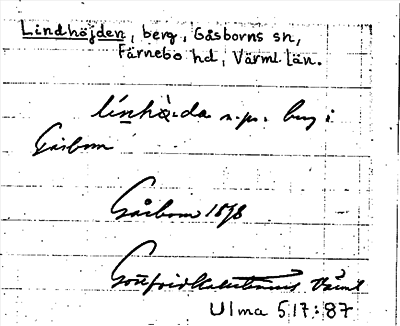 Lindhöjden, berg, Gåsborns sn,
Färnebo hd, Värml. län.
línhò̤.da n.pr. berg i
Gåsborn
Gåsborn 1898
Gottfrid Kallstenius Värml
Ulma 517:87